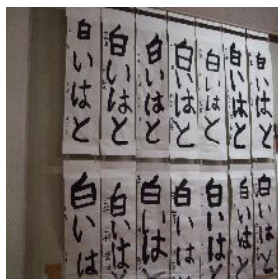 白いはと
白いはと
白いはと
白いはと
白いはと
白いはと
白いはと
白いは
白いは
白いは
白いは
白いは
白いは
白いは